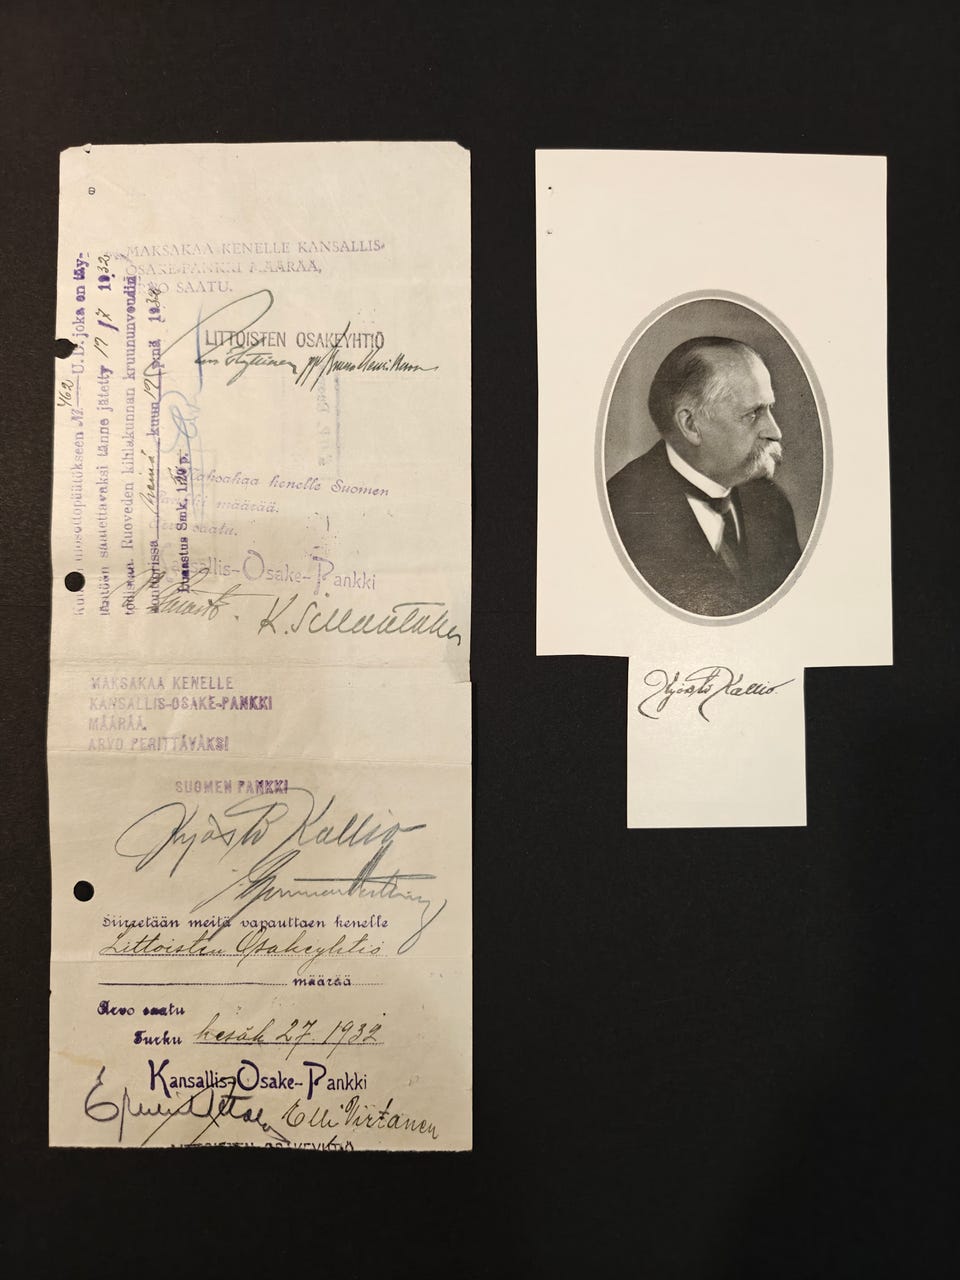 MAKSAKAA KENELLE KANSALLIS-
OSAKE-PANKKI MÄÄRÄÄ,
ARVO SAATU.
LITTOISTEN OSAKEYHTIÖ
462 U.D. joka on täy-
täntöön saatettavaksi tänne jätetty 17/7 1932
Ruoveden kihlakunnan kruununvoudin
konttorissa heinä kuun 17 p:nä 1932
Lunastus Smk. 1:20 p.
Maksakaa kenelle Suomen
Pankki määrää.
Arvo saatu.
Kansallis-Osake-Pankki
K. Sillantaka
MAKSAKAA KENELLE
KANSALLIS-OSAKE-PANKKI
MÄÄRÄÄ.
ARVO PERITTÄVÄKSI
SUOMEN PANKKI
Kyösti Kallio
Siirretään meitä vapauttaen kenelle
Littoisten Osakeyhtiö
määrää
Arvo saatu
Turku kesäk 27. 1932
Kansallis-Osake-Pankki
Elli Virtanen
LITTOISTEN OSAKEYHTIÖ
Kyösti Kallio